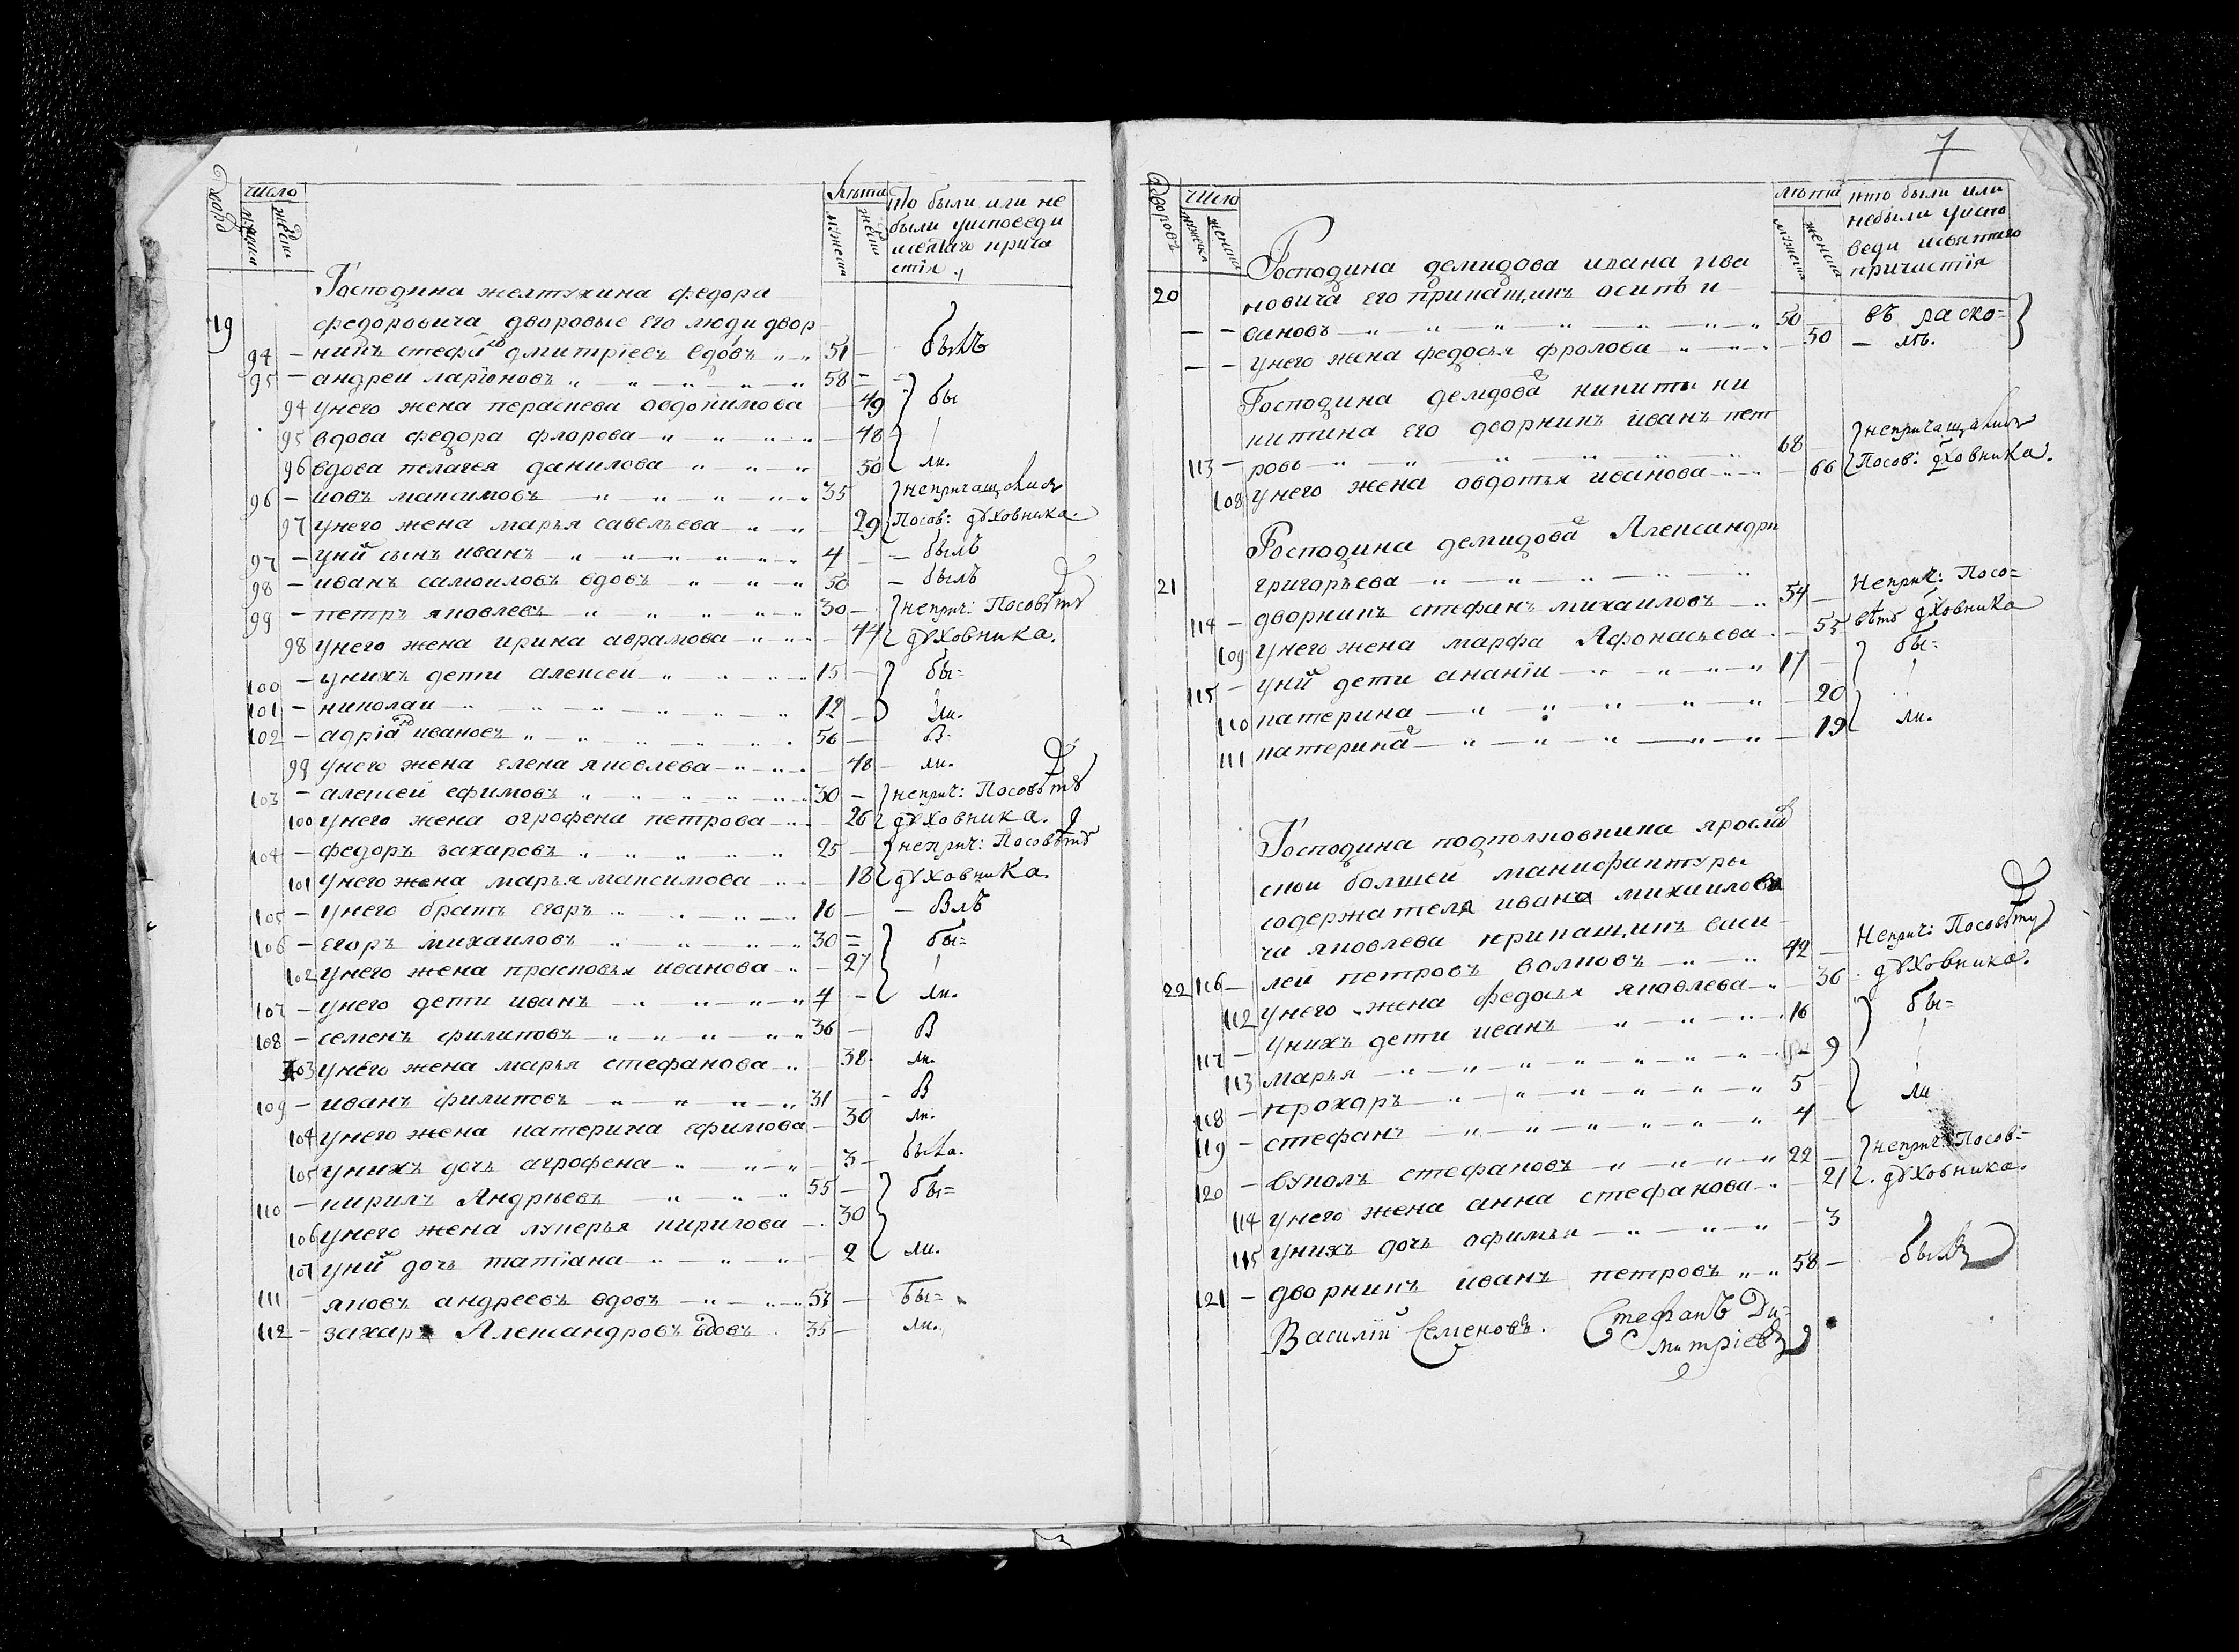 Дворъ число лѣта кто были или не
мужеска женска мужеска женска были уисповеди
исвятаго прича
стія
Господина желтухина федора
19 федоровича дворовые его люди двор
94 – никъ стефанъ дмитріевъ вдовъ 51 – былъ
95 – андреи ларіоновъ 58 –
94 унего жена парасцева овдокимова – 49 бы
95 вдова федора флорова – 48
96 вдова пелагея данилова 50 ли.
96 – иовъ максимовъ 35 непричащались
97 унего жена марья савельева – 29 Посов: духовника.
97 – уних сынъ иванъ 4 – былъ
98 – иванъ самоиловъ вдовъ 50 – былъ
99 – петръ яковлевъ 30 – неприч: Посовѣту
98 унего жена ирина аврамова – 44 духовника.
100 – унихъ дети алексеи 15 – бы=
101 – николаи 12 – ли.
102 – адріанъ ивановъ 56 – В=
99 унего жена елена яковлева – 48 – ли.
103 – алексеи ефимовъ 30 – неприч: Посовѣту
100 унего жена огрофена петрова – 26 духовника.
104 – федоръ захаровъ 25 – неприч: Посовѣту
101 унего жена марья максимова – 18 духовника.
105 – унего братъ егоръ 16 – Былъ
106 – егоръ михаиловъ 30 = бы=
102 унего жена прасковья иванова – 27
107 – унего дети иванъ 4 – ли.
108 – семенъ филиповъ 36 – В
103 унего жена марья стефанова – 38 – ли.
109 – иванъ филиповъ 31 – В
104 унего жена катерина ефимова – 30 ли.
105 унихъ дочь агрофена – 3 – была.
110 – кирилъ Андрѣевъ 55 – бы=
106 унего жена лукерья кирилова – 30
107 уних дочь татіана – 2 ли.
111 – яковъ андреевъ вдовъ 53 – Бы=
112 – захаръ Александровъ вдовъ 35 – ли.
7
Дворовъ число лѣта кто были или
мужеска женска мужеска женска небыли уиспо
веди исвятаго
причастія
Господина демидова ивана ива
20 новича его прикащикъ осипъ и
– – вановъ 50 – въ раско=
– – унего жена федосья фролова – 50 – лѣ.
Господина демидова никиты ни
китича его дворникъ иванъ пет
113 – ровъ 68 непричащались
108 унего жена овдотья иванова – 66 Посов: духовника.
Господина демидова Александра
21 григорьева
114 – дворникъ стефанъ михаиловъ 54 – Неприч: Посо=
109 унего жена марфа Афонасьева – 55 вѣту духовника
115 – уних дети ананіи 17 – бы=
110 катерина – 20
111 катерина – 19 ли.
Господина подполковника яросла
скои болшеи манифактуры
содержателя ивана михаилови
ча яковлева прикащикъ васи
22 116 – леи петровъ волковъ 42 – Неприч: Посовѣту
112 унего жена федосья яковлева – 36 духовника.
117 – унихъ дети иванъ 16 бы=
113 марья – 9
118 – прохаръ 5 – ли
119 – стефанъ 4 –
120 – вуколъ стефановъ 22 – неприч: Посов:=
114 унего жена анна стефанова – 21 духовника.
115 унихъ дочь офимья – 3
121 – дворникъ иванъ петровъ 58 – былъ
Василій Семеновъ. Стефанъ Ди=
митріевъ